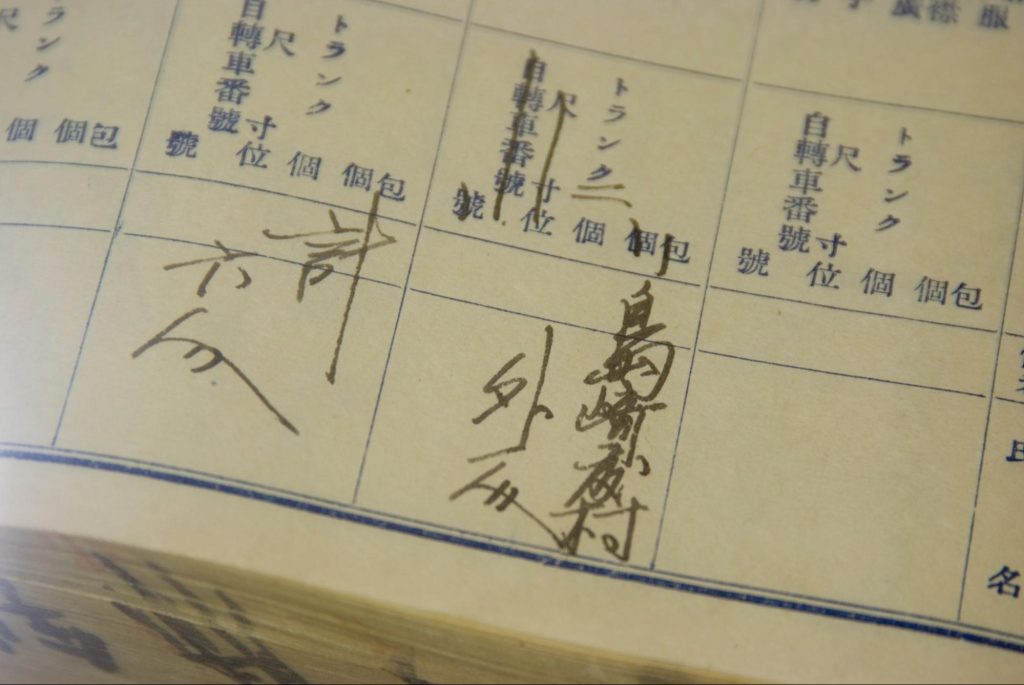 服
襟
氏名
包
個
トランク個
尺寸位
自轉車番號
號
包
個
トランク二個
尺寸位
自轉車番號
號
島崎藤村
外五人
包
個
トランク個
尺寸位
自轉車番號
號
計
六人
包
個
ンク個
尺